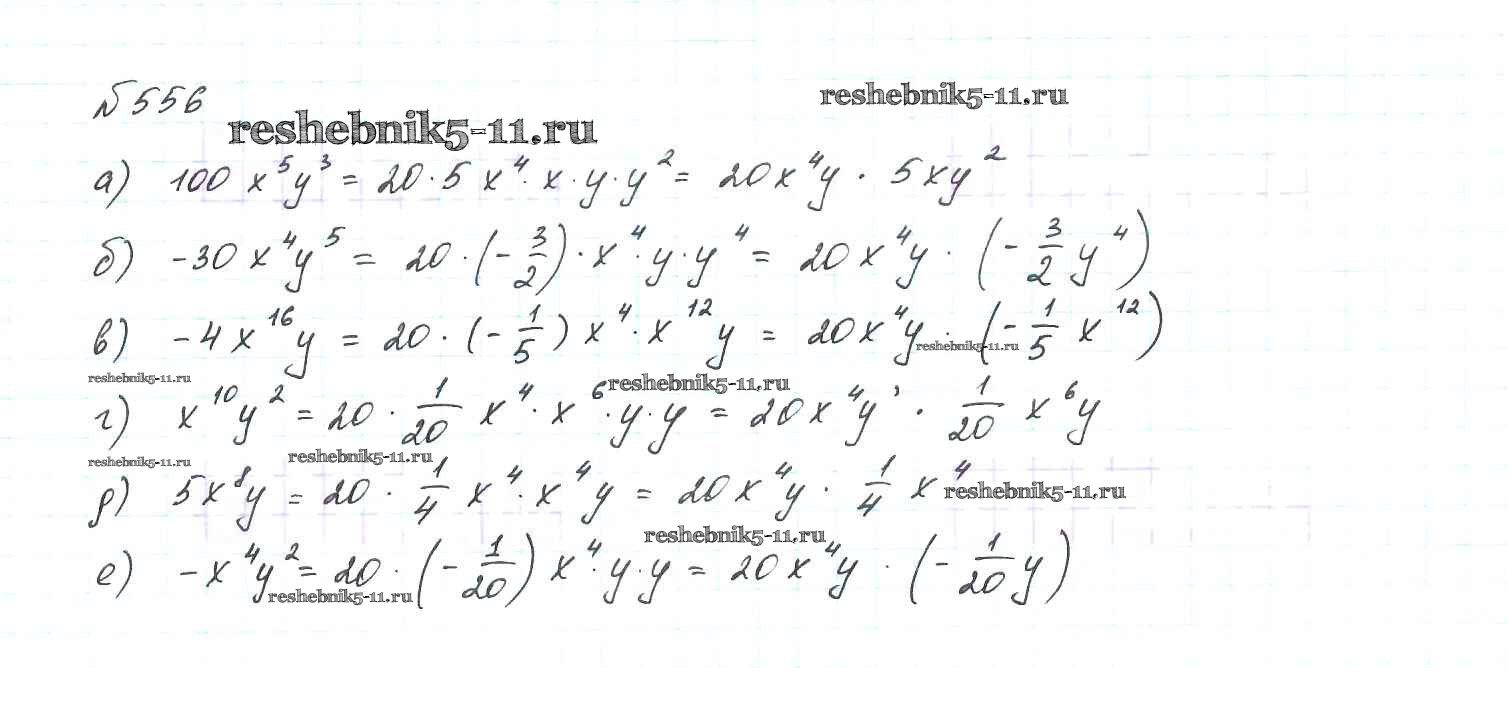 №556
reshebnik5-11.ru
reshebnik5-11.ru
а) 100 x⁵y³ = 20·5 x⁴·x·y·y² = 20x⁴y · 5xy²
б) -30 x⁴y⁵ = 20·(-3/2)·x⁴·y·y⁴ = 20x⁴y · (-3/2 y⁴)
в) -4x¹⁶y = 20·(-1/5) x⁴·x¹²y = 20x⁴y · (-1/5 x¹²)
reshebnik5-11.ru
reshebnik5-11.ru
reshebnik5-11.ru
г) x¹⁰y² = 20 · 1/20 x⁴·x⁶·y·y = 20x⁴y · 1/20 x⁶y
reshebnik5-11.ru
reshebnik5-11.ru
д) 5x⁸y = 20 · 1/4 x⁴·x⁴y = 20x⁴y · 1/4 x⁴
reshebnik5-11.ru
reshebnik5-11.ru
е) -x⁴y² = 20 · (-1/20) x⁴·y·y = 20x⁴y · (-1/20 y)
reshebnik5-11.ru